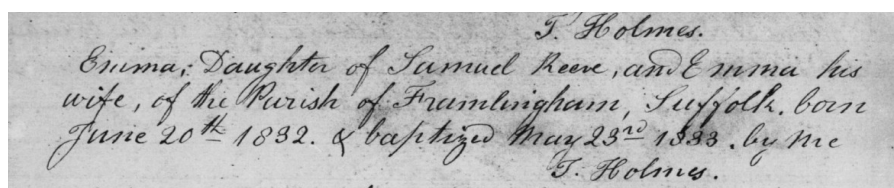 T. Holmes.
Emma; Daughter of Samuel Reeve, and Emma his
wife, of the Parish of Framlingham, Suffolk. born
June 20th 1832. & baptized May 23rd 1833. by me
T. Holmes.